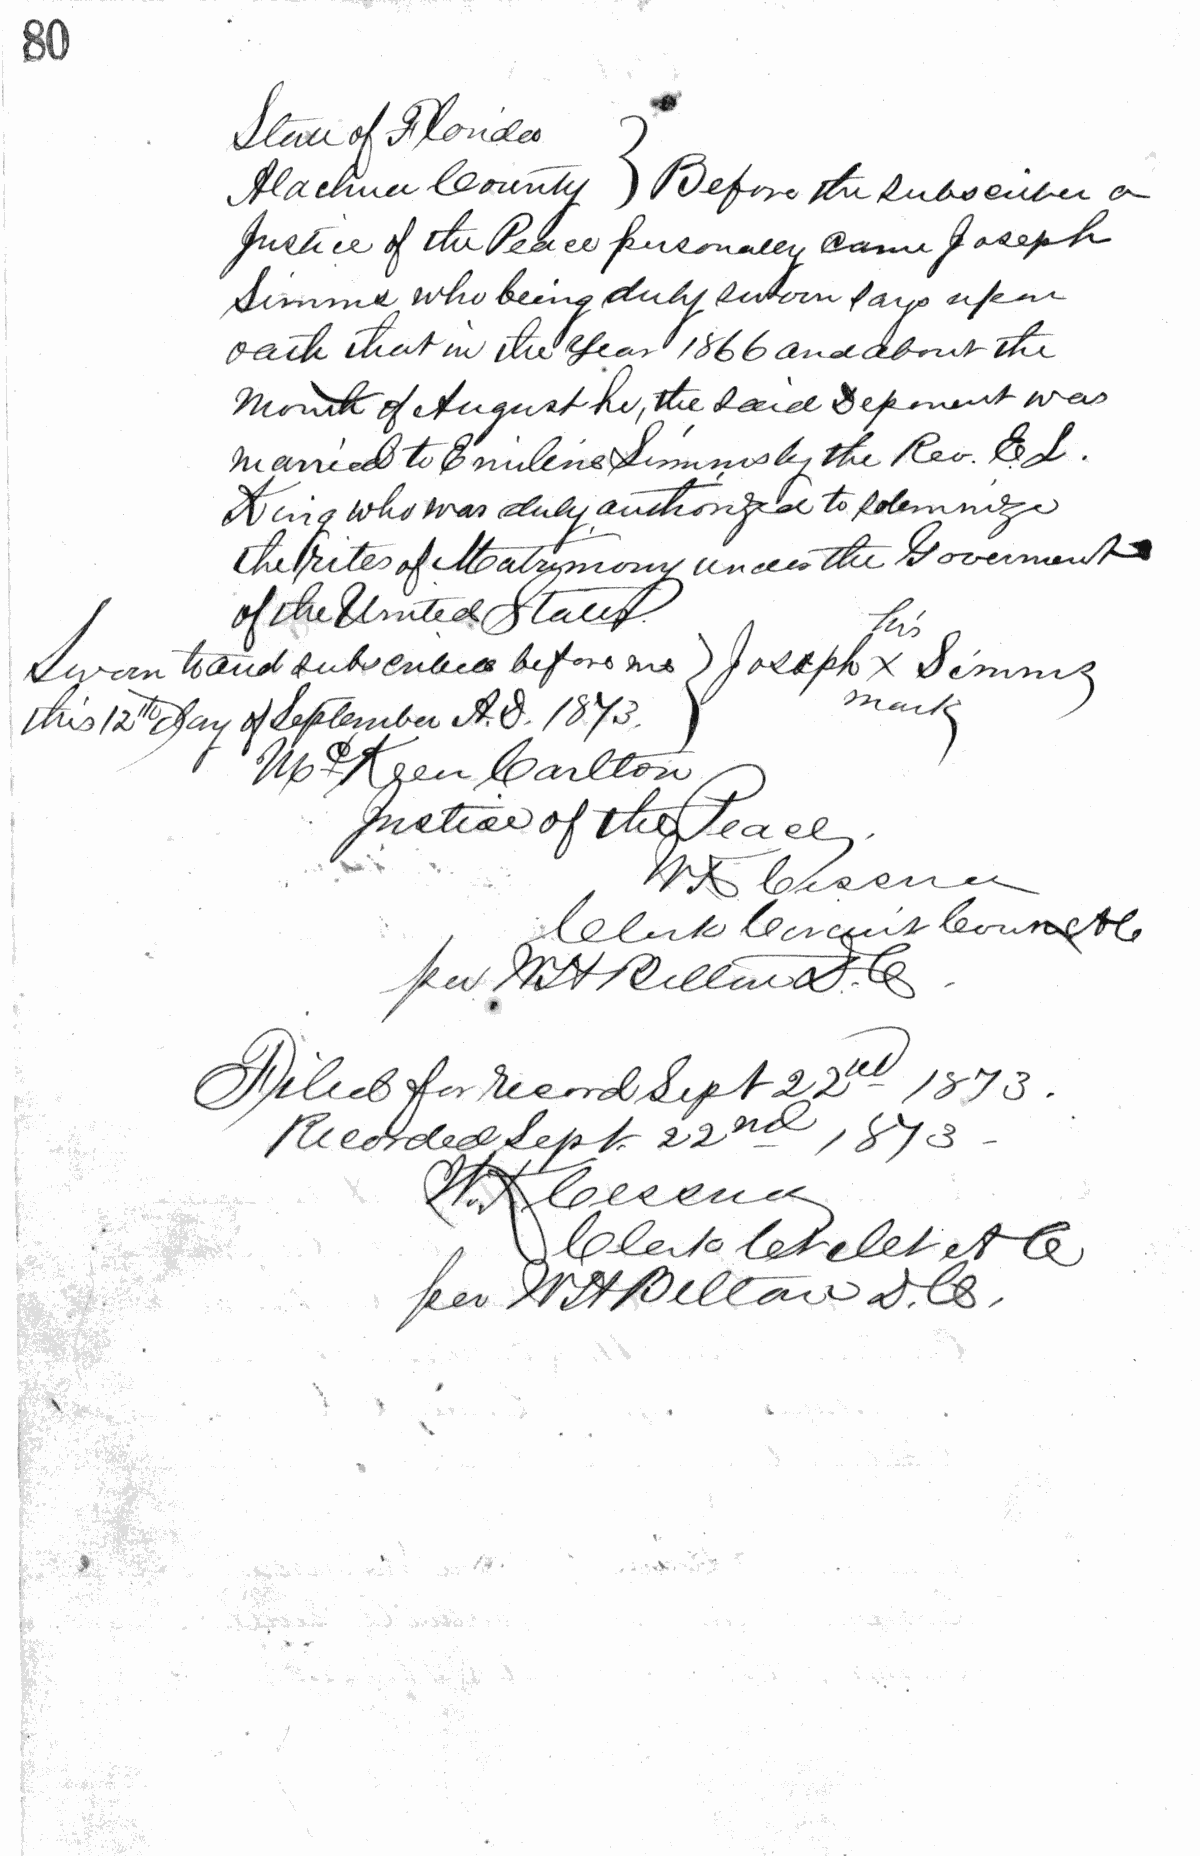 80
State of Florida
Alachua County } Before the subscriber a
Justice of the Peace personally came Joseph
Simms who being duly sworn says upon
oath that in the Year 1866 and about the
Month of August he, the said Deponent was
married to Emiline Simms by the Rev. E. L.
King who was duly authorized to solemnize
the rites of Matrimony under the Goverment
of the United States.
his
Sworn to and subscribed before me } Joseph x Simms
mark
this 12th Day of September A.D. 1873.
McKeen Carlton
Justice of the Peace.
W K Cessna
Clerk Circuit Court A C
per W H Belton D. C.
Filed for record Sept 22nd 1873.
Recorded Sept. 22nd, 1873 -
W. K. Cessna
Clerk Cct Cct A C
per W H Belton D. C.